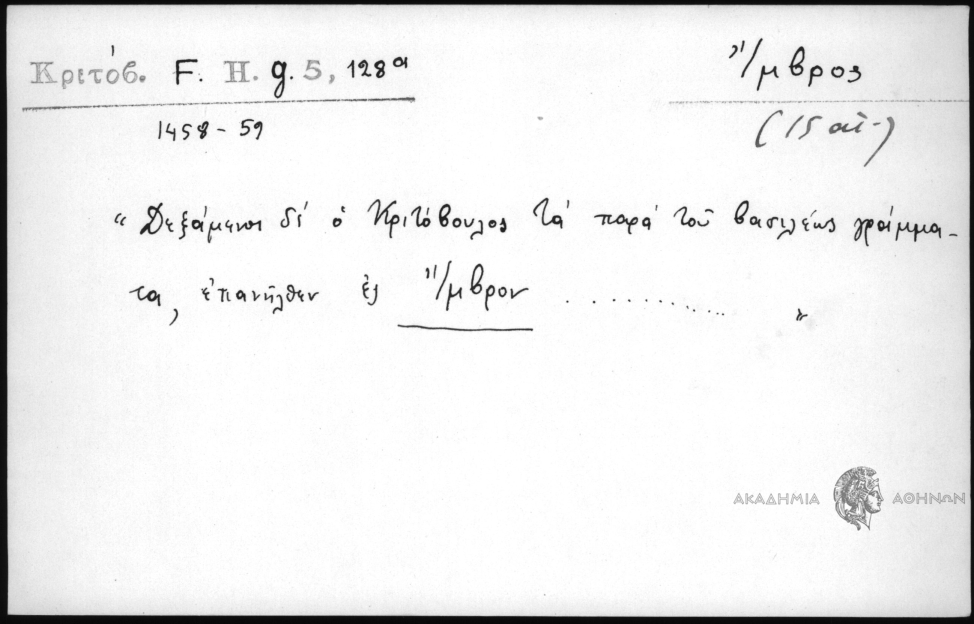 Κριτόβ. F. H. g. 5, 128α
Ἴμβρος
1458 - 59
(15 αἰ.)
“ Δεξάμενος δέ ὁ Κριτόβουλος τά παρά τοῦ βασιλέως γράμμα-
τα, ἐπανῆλθεν ἐς Ἴμβρον .............. ”
ΑΚΑΔΗΜΙΑ ΑΘΗΝΩΝ